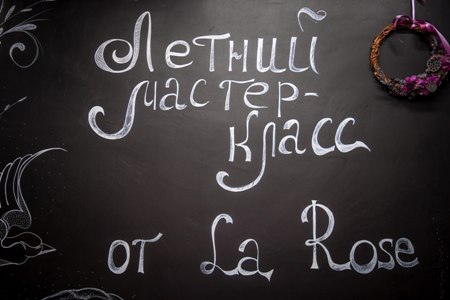 Летний
мастер-
класс
от La Rose